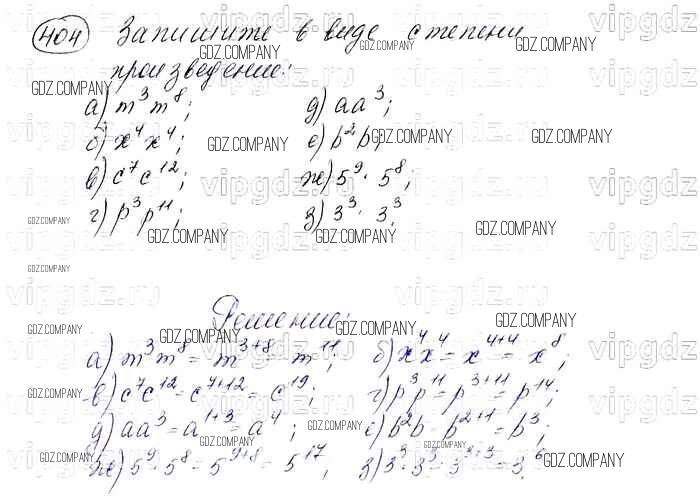 404 Запишите в виде степени
произведение:
а) m³m⁸; д) aa³;
б) x⁴x⁴; е) b²b;
в) c⁷c¹²; ж) 5⁹ · 5⁸;
г) p³p¹¹; з) 3³ · 3³.
Решение:
а) m³m⁸ = m³⁺⁸ = m¹¹; б) x⁴x⁴ = x⁴⁺⁴ = x⁸;
в) c⁷c¹² = c⁷⁺¹² = c¹⁹; г) p³p¹¹ = p³⁺¹¹ = p¹⁴;
д) aa³ = a¹⁺³ = a⁴; е) b²b = b²⁺¹ = b³;
ж) 5⁹ · 5⁸ = 5⁹⁺⁸ = 5¹⁷; з) 3³ · 3³ = 3³⁺³ = 3⁶.
vipgdz.ru
GDZ.COMPANY